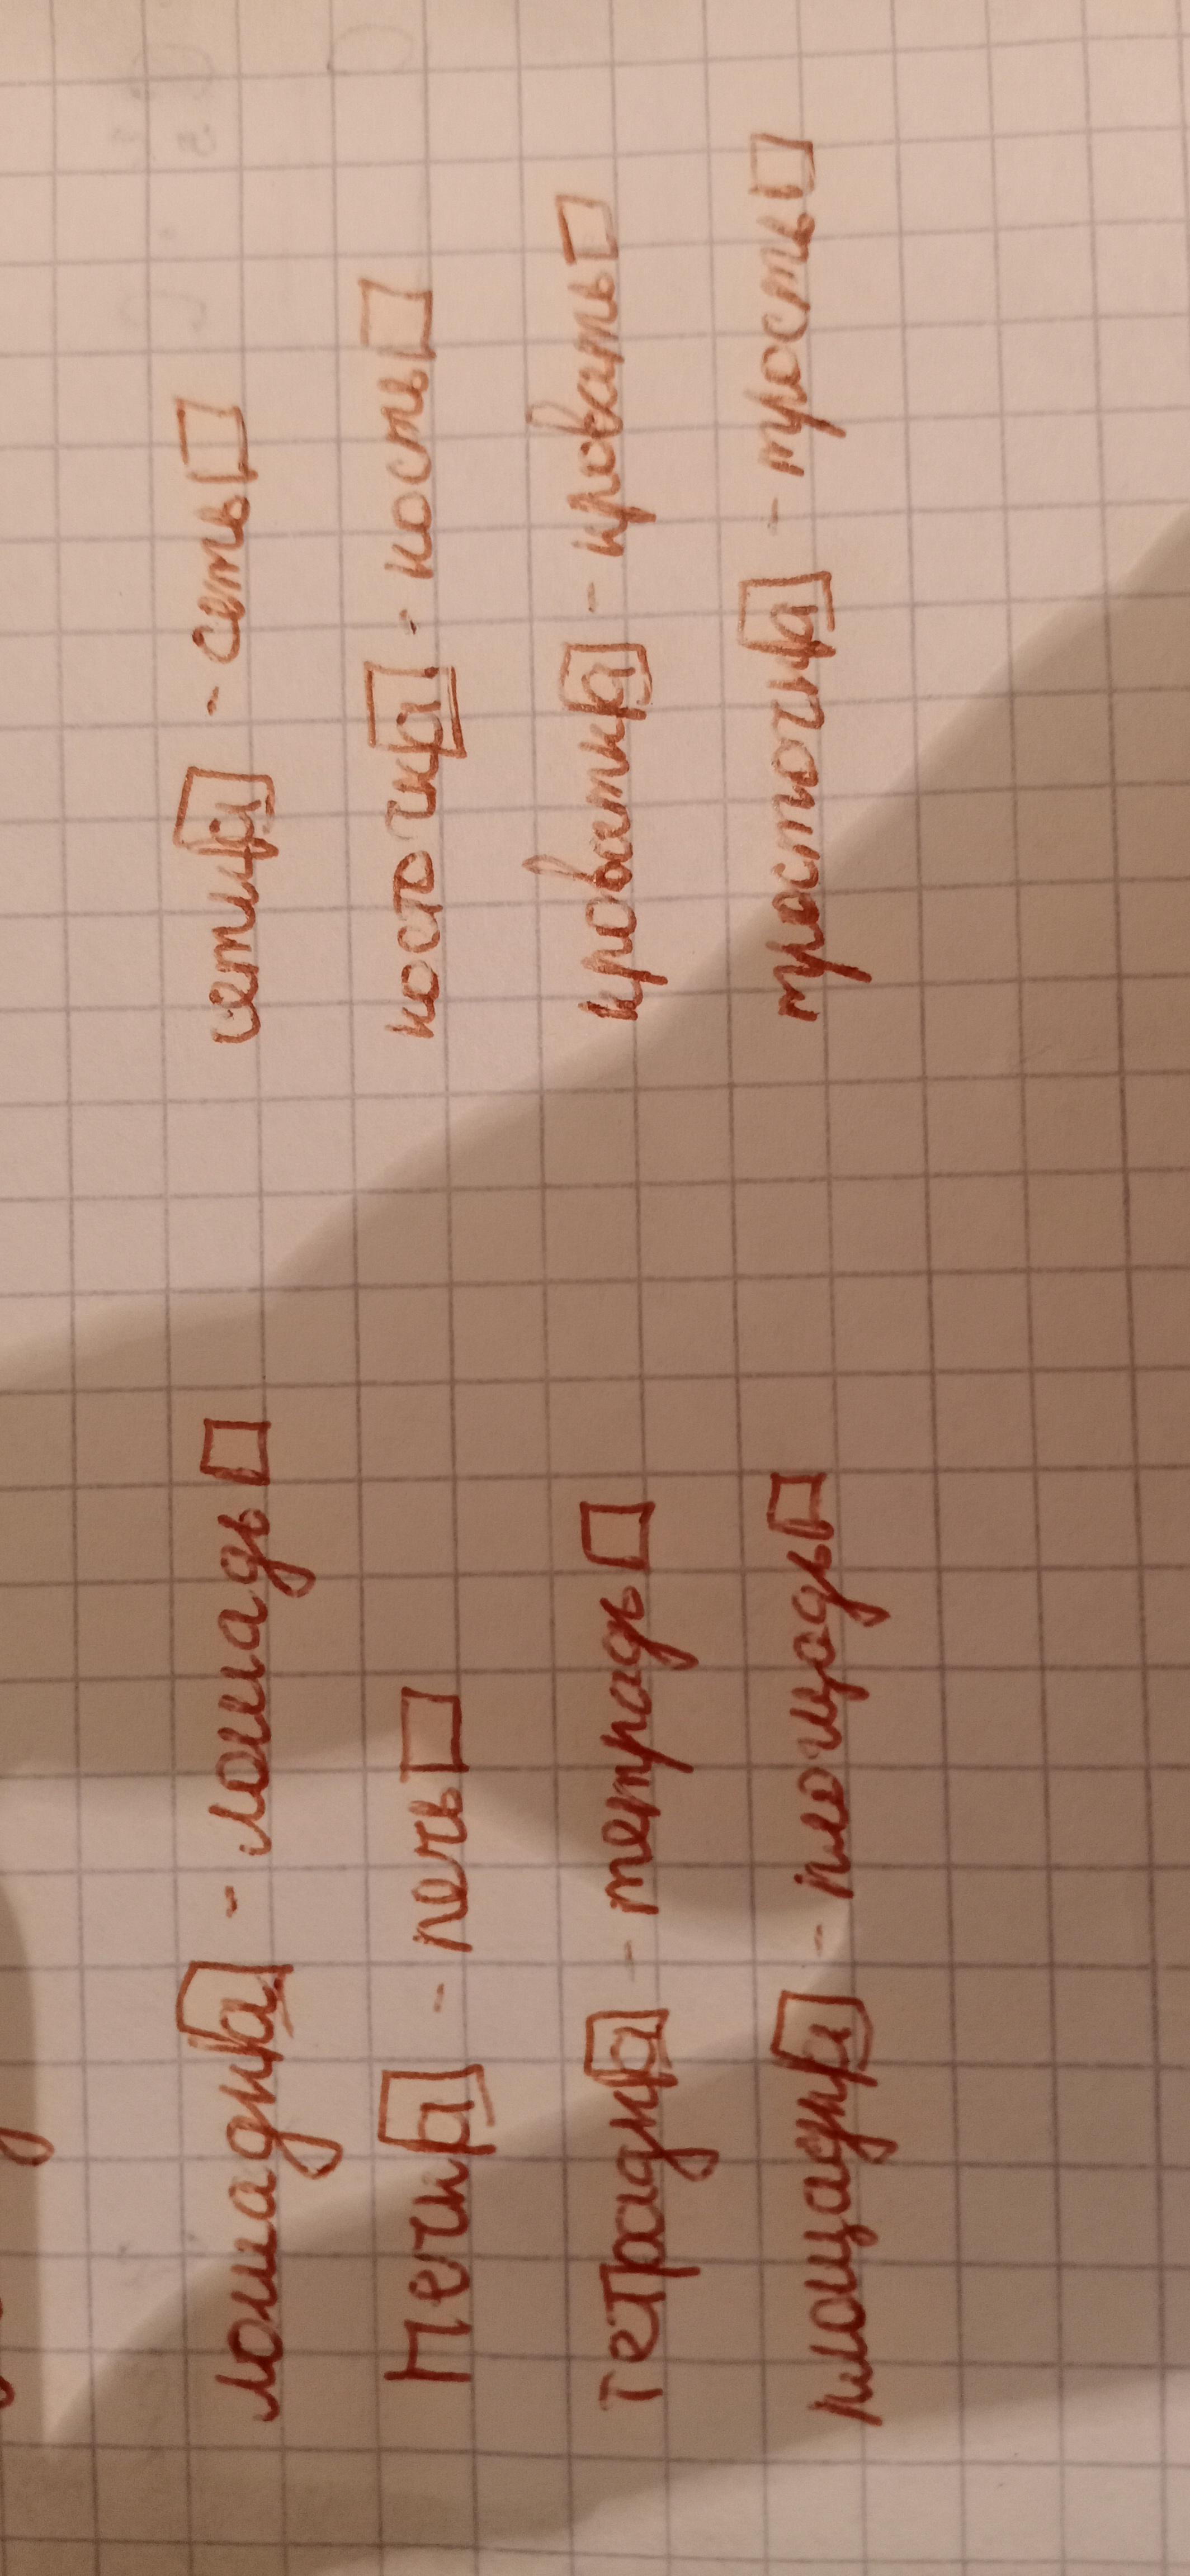 лошадка - лошадь
печка - печь
тетрадка - тетрадь
площадка - площадь
сетка - сеть
косточка - кость
кроватка - кровать
тросточка - трость